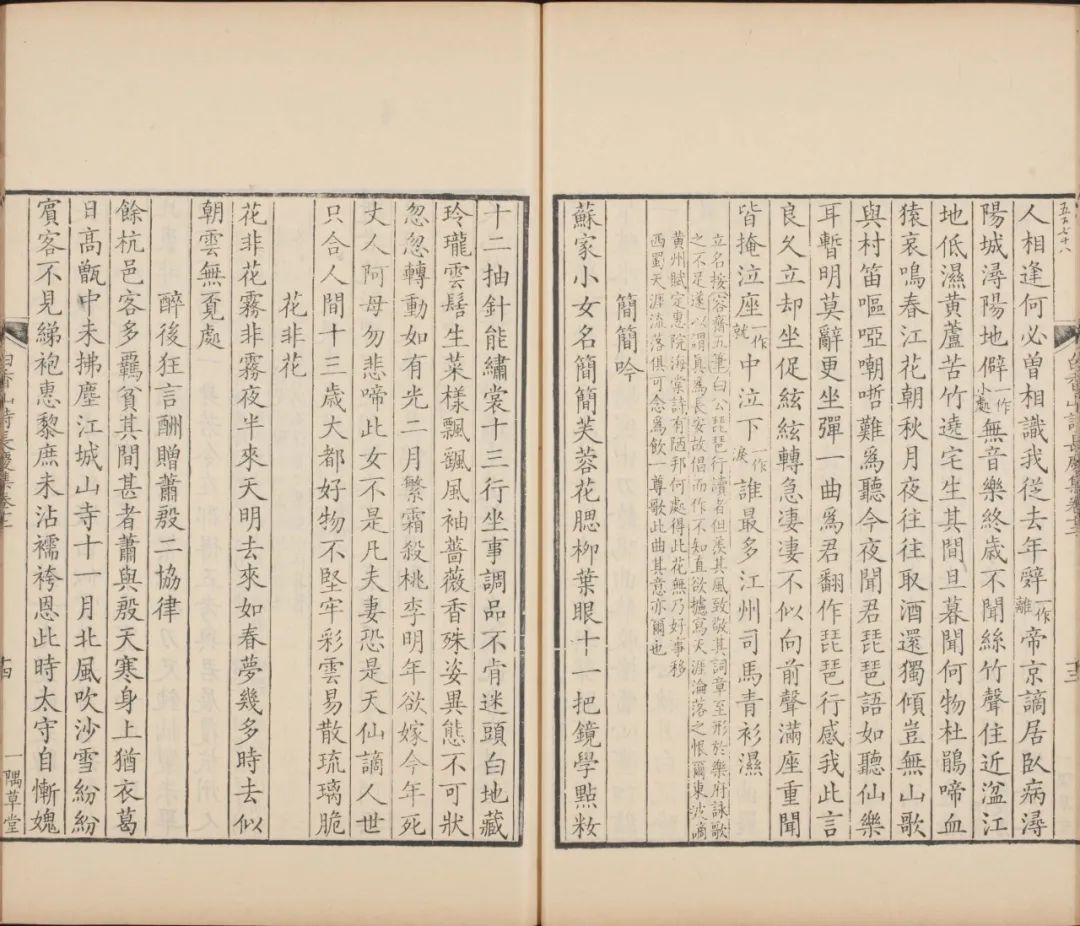 人相逢何必曾相識我從去年辭一作離帝京謫居臥病潯
陽城潯陽地僻一作小處無音樂終歲不聞絲竹聲住近湓江
地低濕黃蘆苦竹遶宅生其間旦暮聞何物杜鵑啼血
猿哀鳴春江花朝秋月夜往往取酒還獨傾豈無山歌
與村笛嘔啞嘲哳難爲聽今夜聞君琵琶語如聽仙樂
耳暫明莫辭更坐彈一曲爲君翻作琵琶行感我此言
良久立却坐促絃絃轉急淒淒不似向前聲滿座重聞
皆掩泣座一作就中泣下一作淚誰最多江州司馬青衫濕
立名按容齋五筆曰白公琵琶行讀者但羨其風致敬其詞章至形於樂府詠歌
之不足遂以謂眞爲長安故倡而作不知直欲攄寫天涯淪落之恨爾東坡謫
黃州賦定惠院海棠詩有陋邦何處得此花無乃好事移
西蜀天涯流落俱可念爲飲一尊歌此曲其意亦爾也
簡簡吟
蘇家小女名簡簡芙蓉花腮柳葉眼十一把鏡學點粧
十二抽針能繡裳十三行坐事調品不肯迷頭白地藏
玲瓏雲髻生菜樣飄颻風袖薔薇香殊姿異態不可狀
忽忽轉動如有光二月繁霜殺桃李明年欲嫁今年死
丈人阿母勿悲啼此女不是凡夫妻恐是天仙謫人世
只合人間十三歲大都好物不堅牢彩雲易散琉璃脆
花非花
花非花霧非霧夜半來天明去來如春夢幾多時去似
朝雲無覓處
醉後狂言酬贈蕭殷二協律
餘杭邑客多羈貧其間甚者蕭與殷天寒身上猶衣葛
日高甑中未拂塵江城山寺十一月北風吹沙雪紛紛
賓客不見綈袍惠黎庶未沾襦袴恩此時太守自慚媿
白香山詩長慶集卷十二
十四
一隅草堂